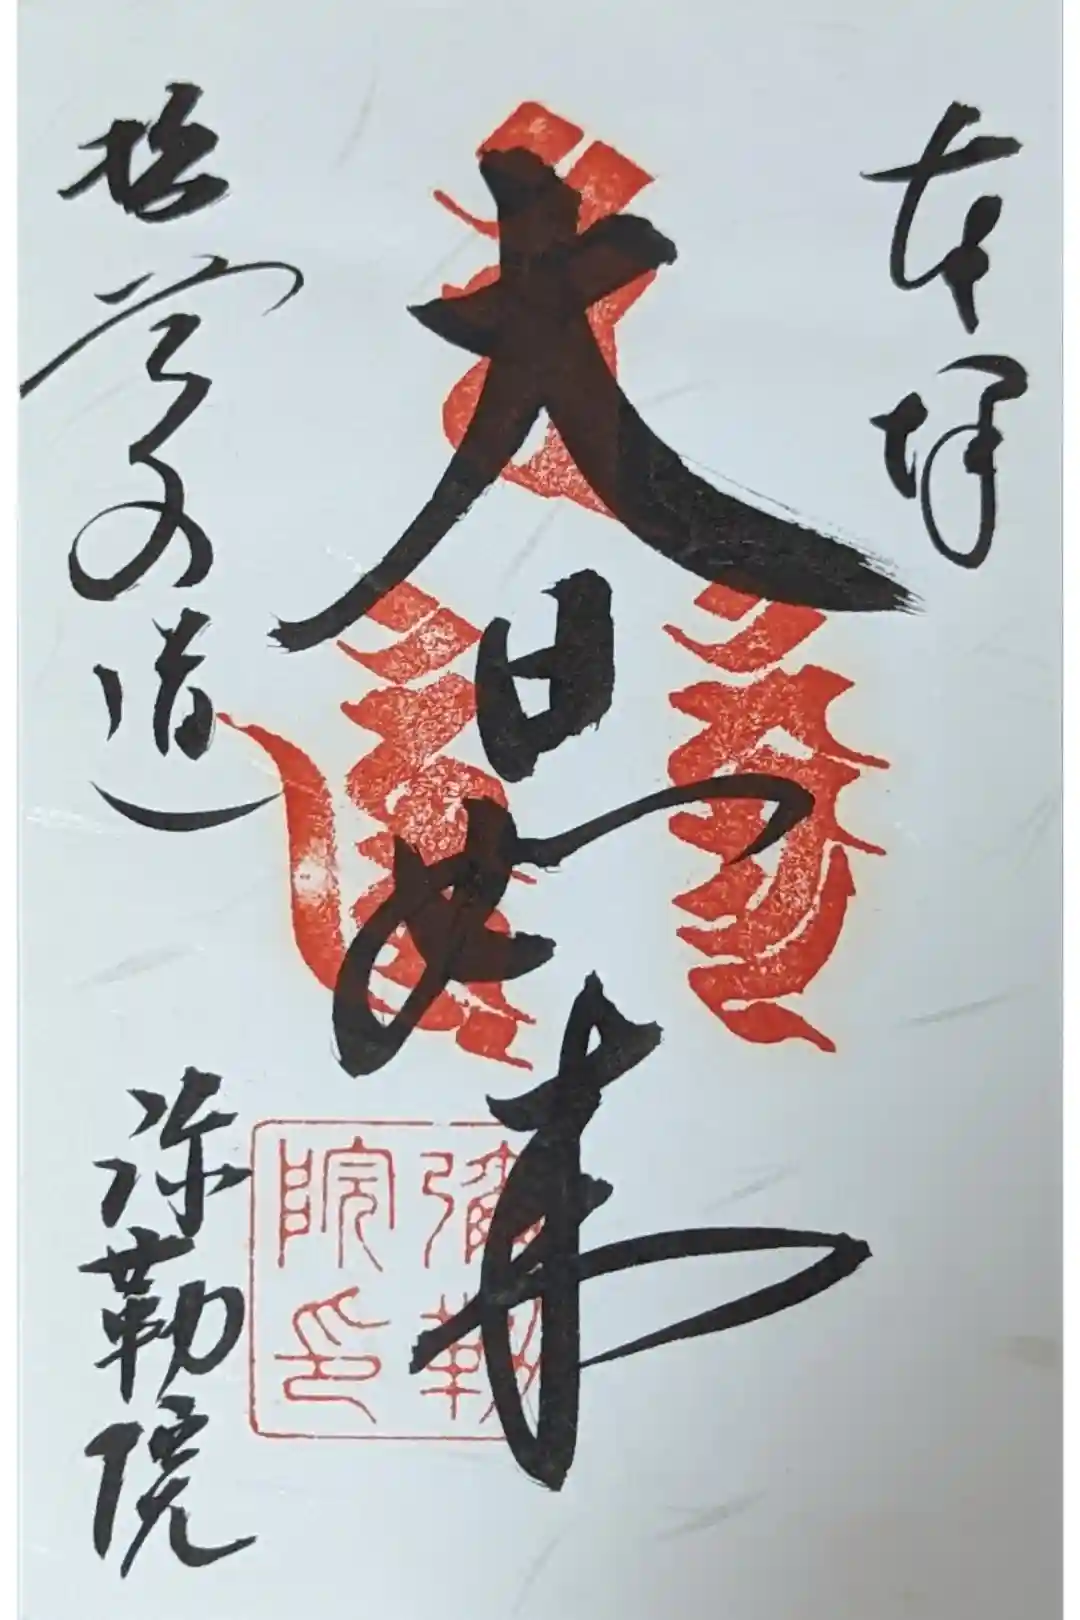 奉拝
大日如来
哲学の道
弥勒院
彌勒
院印